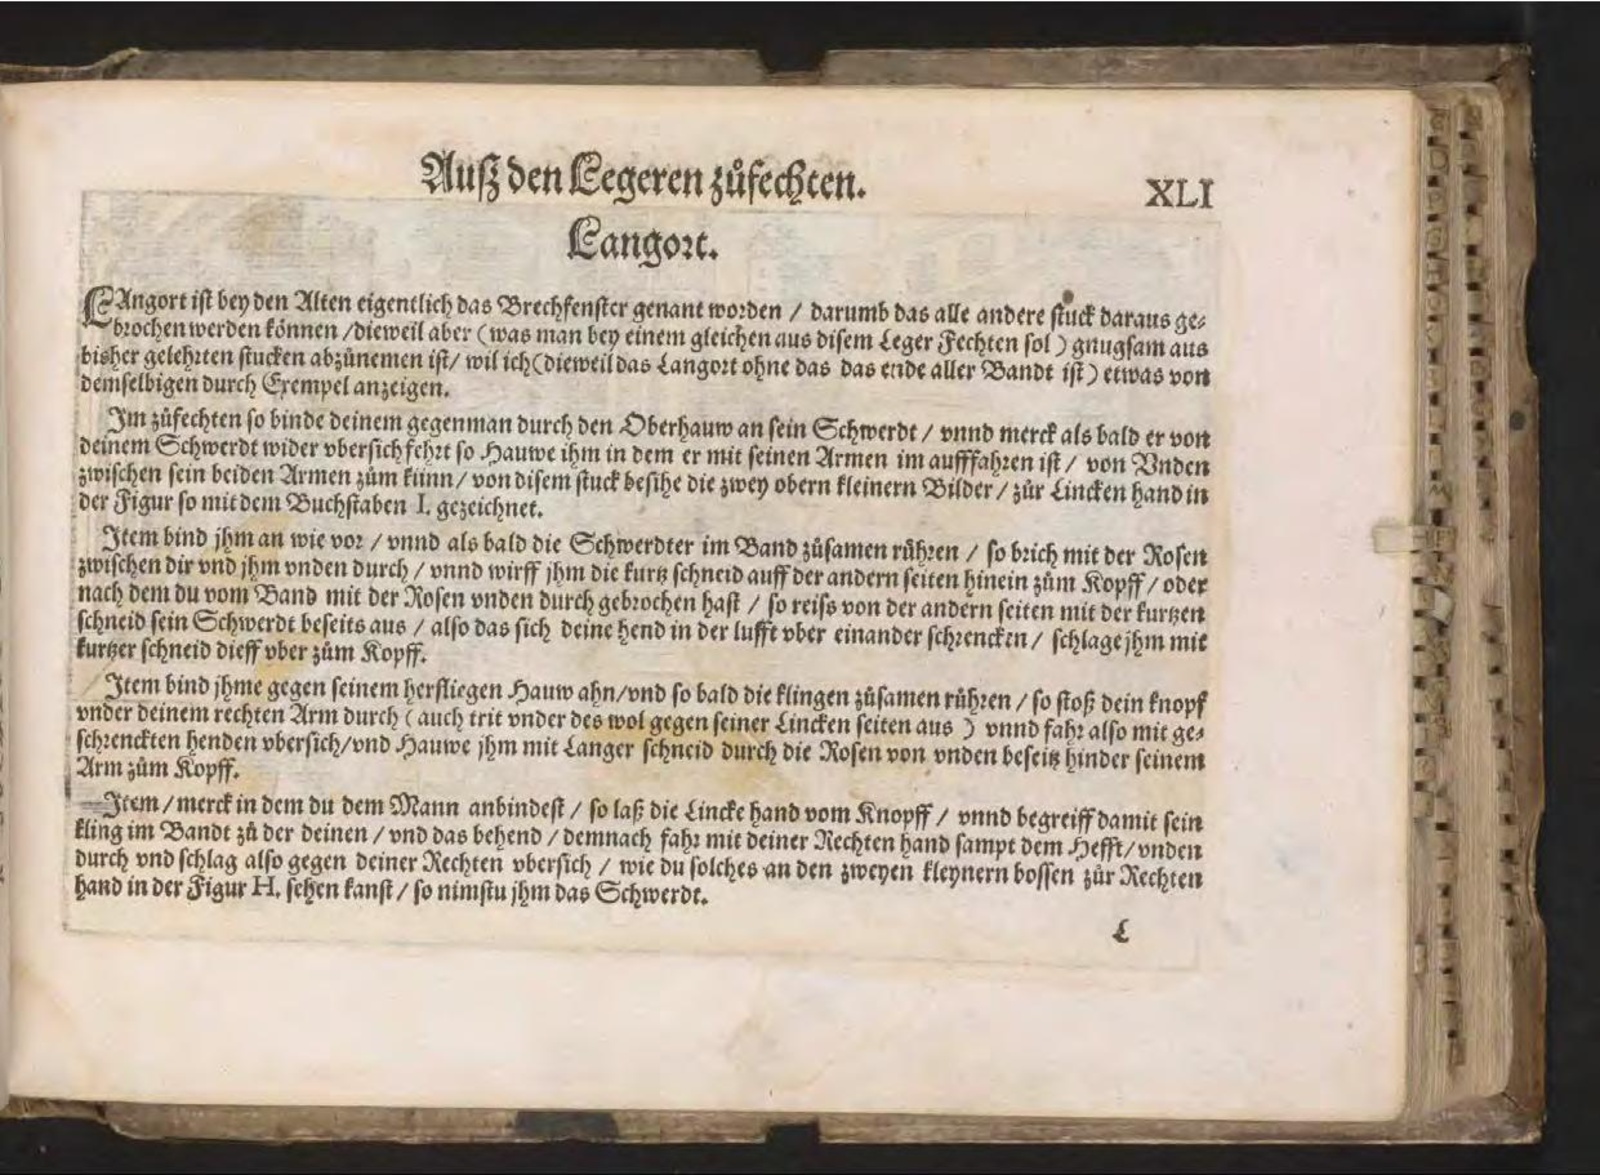 Auß den Legeren zůfechten.
XLI
Langort.
LAngort ist bey den Alten eigentlich das Brechfenster genant worden / darumb das alle andere stuck daraus ge⸗
brochen werden können / dieweil aber (was man bey einem gleichen aus disem Leger Fechten sol) gnugsam aus
bisher gelehrten stucken abzůnemen ist / wil ich (dieweil das Langort ohne das das ende aller Bandt ist) etwas von
demselbigen durch Exempel anzeigen.
Im zůfechten so binde deinem gegenman durch den Oberhauw an sein Schwerdt / vnnd merck als bald er von
deinem Schwerdt wider vbersich fehrt so Hauwe ihm in dem er mit seinen Armen im aufffahren ist / von Vnden
zwischen sein beiden Armen zům kinn / von disem stuck besihe die zwey obern kleinern Bilder / zůr Lincken hand in
der Figur so mit dem Buchstaben I. gezeichnet.
Item bind jhm an wie vor / vnnd als bald die Schwerdter im Band zůsamen růhren / so brich mit der Rosen
zwischen dir vnd jhm vnden durch / vnnd wirff jhm die kurtz schneid auff der andern seiten hinein zům Kopff / oder
nach dem du vom Band mit der Rosen vnden durch gebrochen hast / so reiss von der andern seiten mit der kurtzen
schneid sein Schwerdt beseits aus / also das sich deine hend in der lufft vber einander schrencken / schlage jhm mit
kurtzer schneid dieff vber zům Kopff.
Item bind jhme gegen seinem herfliegen Hauw ahn / vnd so bald die klingen zůsamen rühren / so stoß dein knopf
vnder deinem rechten Arm durch (auch trit vnder des wol gegen seiner Lincken seiten aus) vnnd fahr also mit ge⸗
schrenckten henden vbersich / vnd Hauwe jhm mit Langer schneid durch die Rosen von vnden beseitz hinder seinem
Arm zům Kopff.
Item / merck in dem du dem Mann anbindest / so laß die Lincke hand vom Knopff / vnnd begreiff damit sein
kling im Bandt zů der deinen / vnd das behend / demnach fahr mit deiner Rechten hand sampt dem Hefft / vnden
durch vnd schlag also gegen deiner Rechten vbersich / wie du solches an den zweyen kleynern bossen zůr Rechten
hand in der Figur H. sehen kanst / so nimstu jhm das Schwerdt.
L